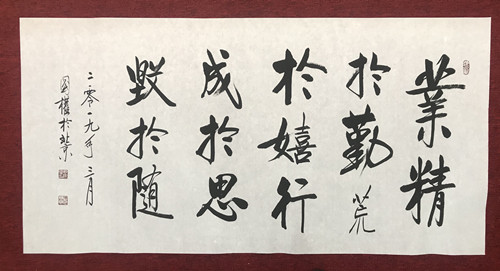 業精
於勤荒
於嬉行
成於思
毀於隨
二零一九年三月
國權於北京